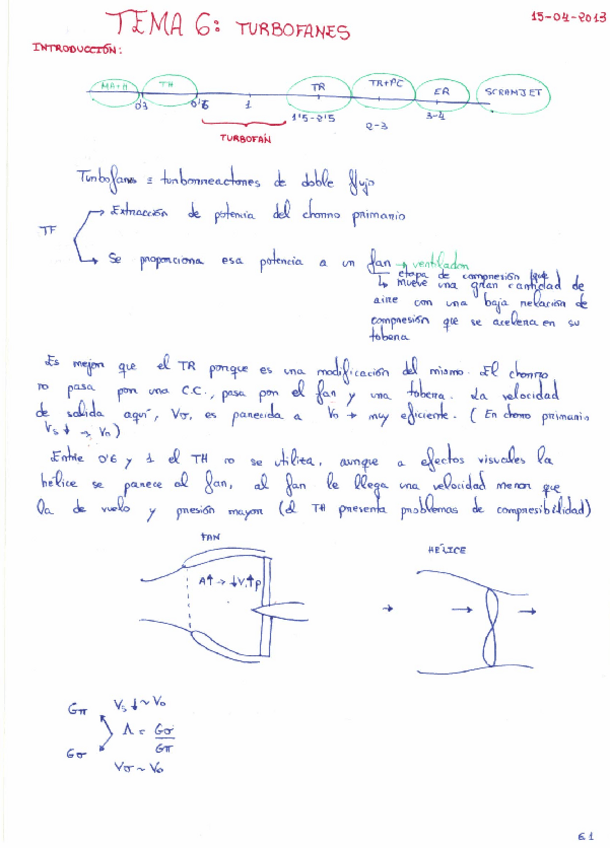 TEMA 6: TURBOFANES
15-04-2013
INTRODUCCIÓN:
MA+H TH TR TR+PC ER SCRAMJET
0'3 0'6 1 1'5-2'5 2-3 3-4
TURBOFÁN
Turbofanes ≡ turborreactores de doble flujo
TF
Extracción de potencia del chorro primario
Se proporciona esa potencia a un fan → ventilador
etapa de compresión (que
↳ mueve una gran cantidad de
aire con una baja relación de
compresión que se acelera en su
tobera
Es mejor que el TR porque es una modificación del mismo. El chorro
no pasa por una C.C., pasa por el fan y una tobera. La velocidad
de salida aquí, Vσ, es parecida a V₀ → muy eficiente. (En chorro primario
Vs↓ → V₀)
Entre 0'6 y 1 el TH no se utiliza, aunque a efectos visuales la
hélice se parece al fan, al fan le llega una velocidad menor que
la de vuelo y presión mayor (el TH presenta problemas de compresibilidad)
FAN
HÉLICE
A↑ → ↓V, ↑p
Gπ Vs↓ ~ V₀
Λ = Gσ/Gπ
Gσ Vσ ~ V₀
61